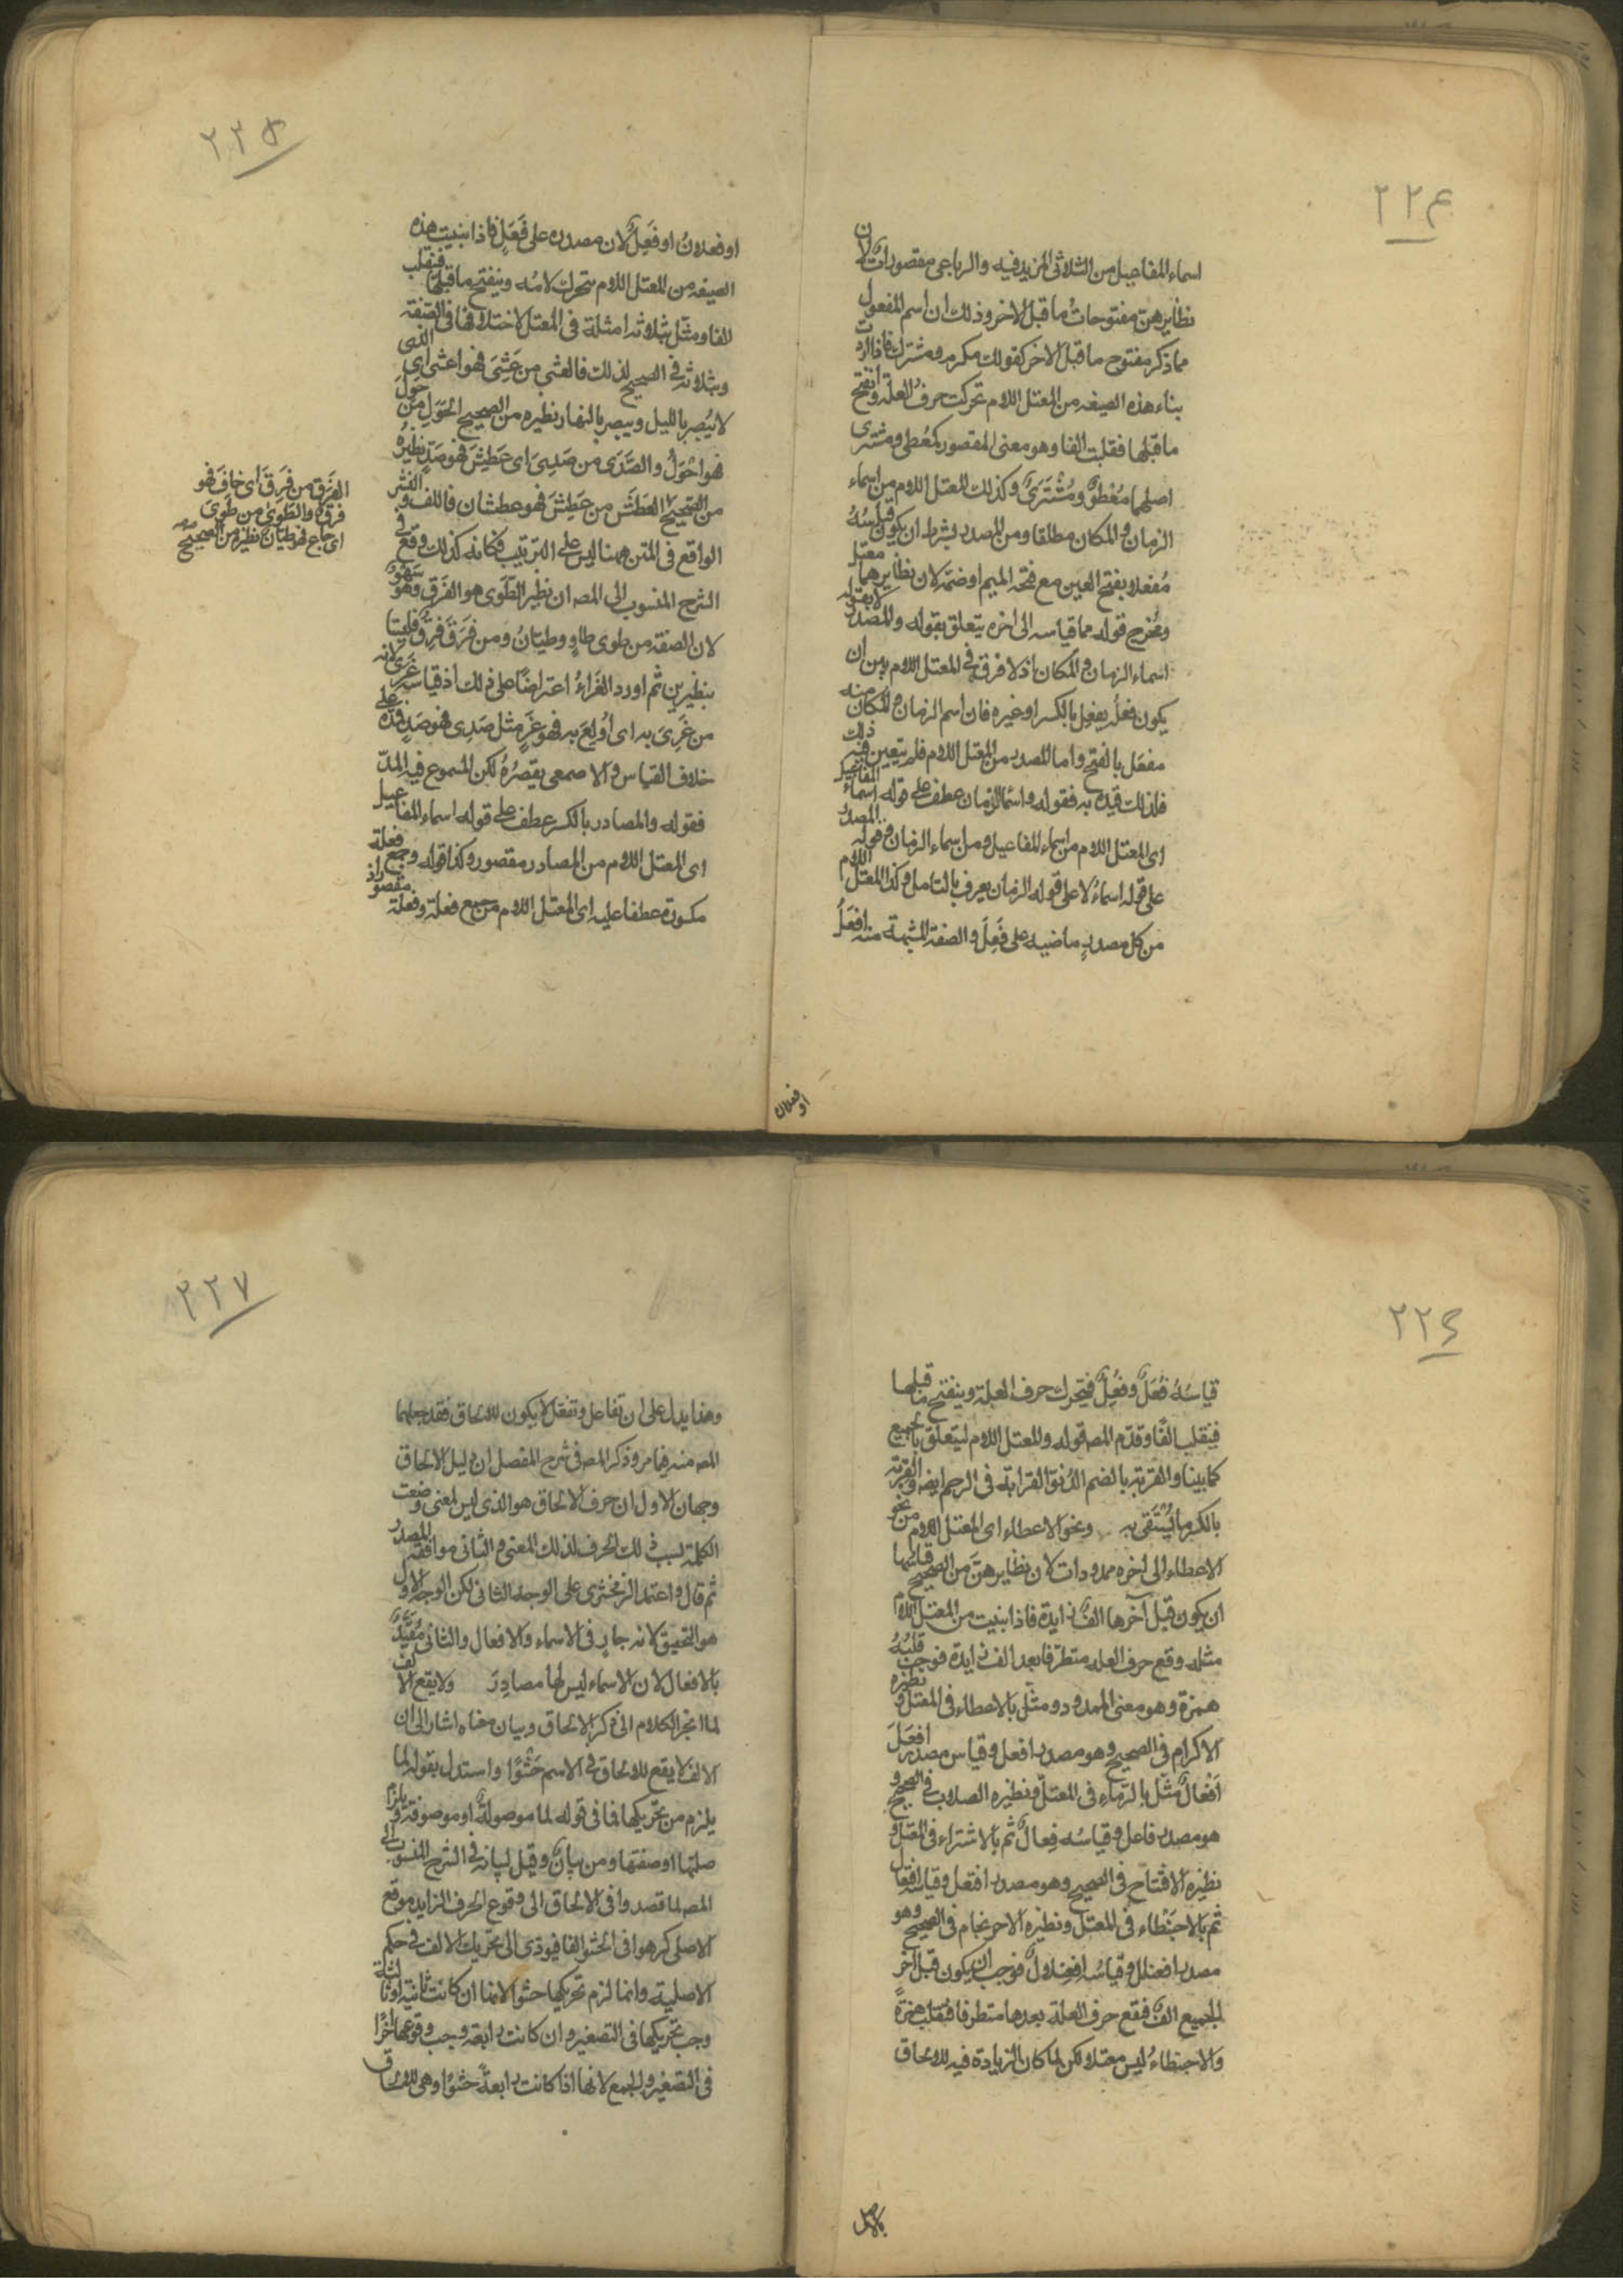 ٢٢٤
اسماء المفاعيل من الثلاثى المزيد فيه والرباعى مقصورات لان
نظايرهن مفتوحات ما قبل الاخر وذلك ان اسم المفعول
مما ذكر مفتوح ما قبل الاخر كقولك مكرم ومشترك فاذا اردت
بناء هذه الصيغه من المعتل اللام تحركت حرف العلة وانفتح
ما قبلها فقلبت الفا وهو معنى المقصور كمعُطى ومشترى
اصلهما مُعْطَوٌ ومُشْتَرَىٌ وكذلك المعتل اللام من اسماء
الزمان والمكان مطلقا ومن المصدر بشرط ان يكون قياسُهُ
مُفعلا بفتح العين مع فتحة الميم او ضمّه لان نظايرهما معتل
وتخرج قوله مما قياسه الى اخره يتعلق بقوله والمصدر لا بقوله
اسماء الزمان والمكان اذ لا فرق فى المعتل اللام بين ان
يكون فعلُه يفعِل بالكسر او غيره فان اسم الزمان والمكان منه
مفعَل بالفتح واما المصدر من المعتل اللام فلم يتعين فيه ذلك
فلذلك قيده به فقوله واسما الزمان عطف على قوله اسماء المفاعيل
اى المعتل اللام من اسماء المفاعيل ومن اسماء الزمان وقوله المصدر
على قوله اسماءُ لا على قوله الزمان يعرف بالتامل وكذا المعتل اللام
من كل مصدرٍ ماضيه على فَعِلَ والصفة المشبهة منه افعَلُ
او فعلان
٢٢٥
او فعلانُ او فَعِلٌ لان مصدره على فَعَلٍ فاذا بنيت هذه
الصيغه من المعتل اللام تتحرك لامُه وينفتح ما قبلها فتقلب
الفا ومثّل بثلاثة امثلة فى المعتل لاختلافها فى الصفة
وبثلاثة فى الصحيح لذلك فالعشى من عَشِىَ فهو اعشى اى الذى
لا يُبصر بالليل ويبصر بالنهار نظيره من الصحيح الحَوَل من حَوِلَ
فهو احْوَلُ والصَّدَى من صَدِىَ اى عَطِشَ فهو صَدٍ نظيرُهُ
من الصحيح العَطَشَ من عَطِشَ فهو عطشان فاللف والنشر
الواقع فى المتن ههنا ليس على الترتيب فكانه كذلك وقع فى
الشرح المنسوب الى المصـ ان نظير الطَّوَى هو الفَرَق وهو سَهْوٌ
لان الصفة من طوى طاوٍ وطيّانُ ومن فَرَقَ فَرِقٌ فليستا
بنظيرين ثم اورد الغَرَاءُ اعتراضًا على ذلك اذ قياسه غَرَىً لانه
من غَرِىَ به اى اُولِعَ به فهو غَرٍ مثل صَدِى فهو صَدٍ فمدّه على
خلاف القياس والاصمعى يقصُرُهُ لكن المسموع فيه المدّ
فقوله والمصادر بالكسر عطف على قوله اسماء المفاعيل
اى المعتل اللام من المصادر مقصور وكذا قوله وجمع فعلة
مكسورة عطفا عليه اى المعتل اللام من جمع فعلة وفعلة مقصور اذ
الفَرَق من فَرَقَ اى خافَ فهو
فرق والطَوَى من طَوَى
اى جاع فهو طيّان نظيره من الصحيح
٢٢٦
قياسُهُ فُعَلٌ وفِعَلٌ فيتحرك حرف العلة وينفتح ما قبلها
فينقلب الفًا وقدّم المصـ قوله والمعتل اللام ليتعلق بالجميع
كما بينا والقربة بالضم الدُنوّ القرابة فى الرحم ايضا والقربة
بالكسر ما يُسْتَقى به ونحو الاعطاء اى المعتل اللام من نحو
الاعطاء الى اخره ممدودات لان نظايرهنّ من الصحيح قياسها
ان يكون قبل آخرها الفٌ زايدة فاذا بنيت من المعتل اللام
مثله وقع حرف العله متطرّفا بعد الف زايدة فوجب قلبُهُ
همزة وهو معنى الممدود ومثّل بالاعطاء فى المعتل ونظيره
الاكرام فى الصحيح وهو مصدر افعل وقياس مصدر افعَلَ
اَفْعَالٌ مثّل بالرِّماءِ فى المعتلّ ونظيره الصلاب فى الصحيح و
هو مصدر فاعل وقياسُه فِعالٌ ثم بالاشتراء فى المعتل و
نظيره الافتتاح فى الصحيح وهو مصدر افتعل وقياسه افتعال
ثم بالاحبَنْطاءِ فى المعتل ونظيره الاحرنجام فى الصحيح وهو
مصدر افعنلل وقياسُه افعنلالٌ فوجب ان يكون قبل آخر
الجميع الفٌ فتقع حرف العلة بعدها متطرفا فتقلب همزةً
والاحبنطاءُ ليس معتلا ولكن لما كان الزيادة فيه للالحاق
٢٢٧
وهذا يدل على ان تفاعل وتفعّل لا يكون للالحاق فقد جعلهما
المصـ منه فيما مر وذكر المصـ فى شرح المفصل ان دليل الالحاق
وجهان الاول ان حرف الالحاق هو الذى ليس لمعنى وضعت
الكلمة بسبب ذلك الحرف لذلك المعنى والثانى موافقة المصدر
ثم قال واعتمد الزمخشرى على الوجه الثانى لكن الوجه الاول
هو التحقيق لانه جارٍ فى الاسماء والافعال والثانى مُقَيَّدٌ
بالافعال لان الاسماء ليس لها مصادِرَ ولا يقع الالف
لما انجر الكلام الى ذكر الالحاق وبيان معناه اشار الى ان
الالف لا يقع للالحاق فى الاسم حَشْوًا واستدل بقوله لما
يلزم من تحريكها فما فى قوله لما موصولةٌ او موصوفة ويلزمُ
صلتها او صفتها ومن بيانٌ وقيل لبيانه فى الشرح المنسوب الى
المصـ لما قصدوا فى الالحاق الى وقوع الحرف الزايد موقع
الاصلى كرهوا فى الحشو الفا فيؤدى الى تحريك الالف فى حكم
الاصلية وانما لزم تحريكها حشوا لانها ان كانت ثانية او ثالثة
وجب تحريكها فى التصغير وان كانت رابعة وجب وقوعها آخرًا
فى التصغير والجمع لانها اذا كانت رابعةً حشوًا وهى للالحاق